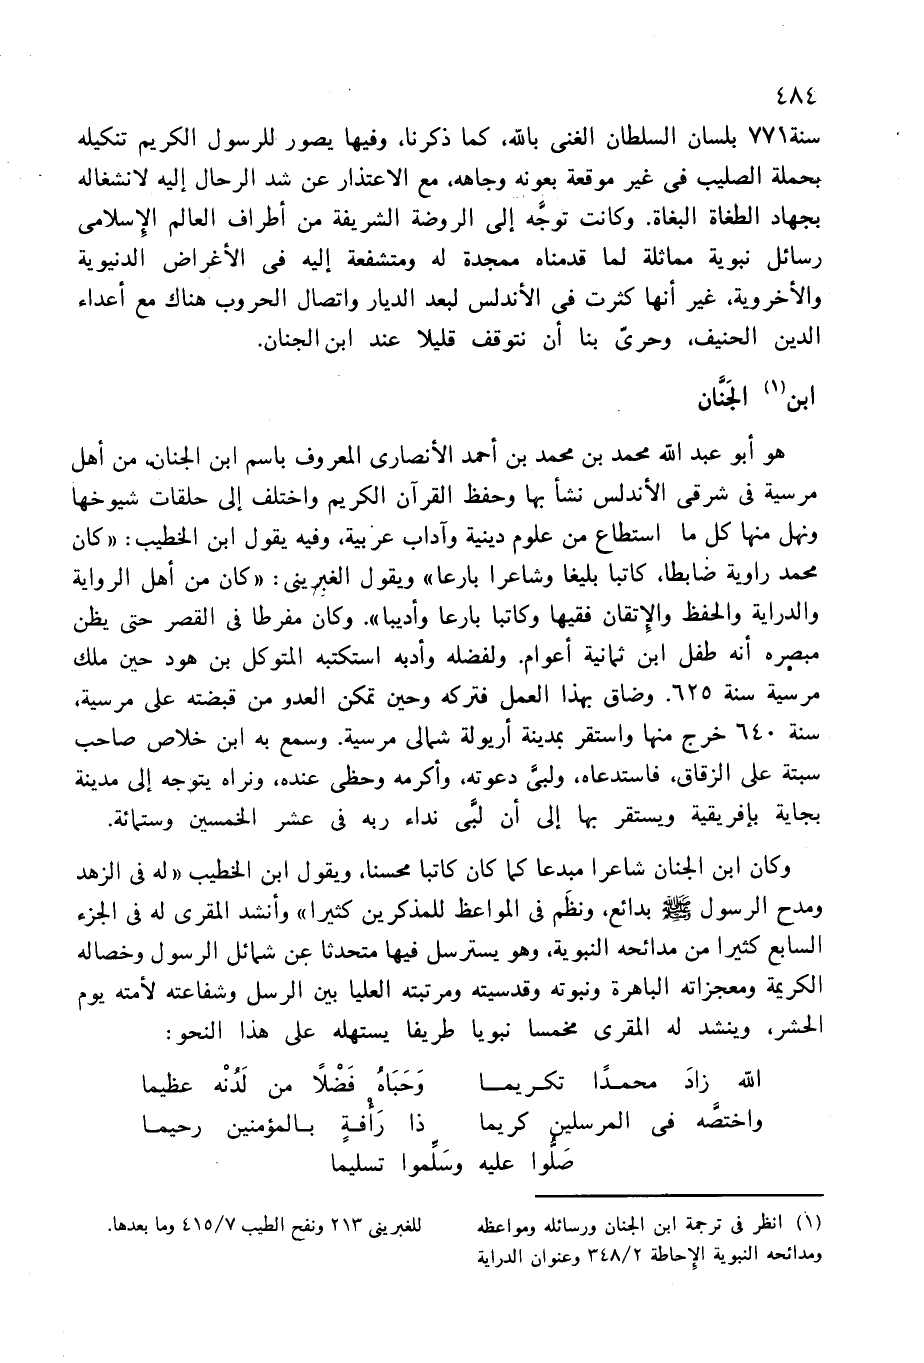 ٤٨٤
سنة ٧٧١ بلسان السلطان الغنى بالله، كما ذكرنا، وفيها يصور للرسول الكريم تنكيله
بحملة الصليب فى غير موقعة بعونه وجاهه، مع الاعتذار عن شد الرحال إليه لانشغاله
بجهاد الطغاة البغاة. وكانت توجَّه إلى الروضة الشريفة من أطراف العالم الإسلامى
رسائل نبوية مماثلة لما قدمناه ممجدة له ومتشفعة إليه فى الأغراض الدنيوية
والأخروية، غير أنها كثرت فى الأندلس لبعد الديار واتصال الحروب هناك مع أعداء
الدين الحنيف، وحرىّ بنا أن نتوقف قليلا عند ابن الجنان.
ابن(١) الجَنَّان
هو أبو عبد الله محمد بن محمد بن أحمد الأنصارى المعروف باسم ابن الجنان، من أهل
مرسية فى شرقى الأندلس نشأ بها وحفظ القرآن الكريم واختلف إلى حلقات شيوخها
ونهل منها كل ما استطاع من علوم دينية وآداب عربية، وفيه يقول ابن الخطيب: «كان
محمد راوية ضابطا، كاتبا بليغا وشاعرا بارعا» ويقول الغبرينى: «كان من أهل الرواية
والدراية والحفظ والإتقان فقيها وكاتبا بارعا وأديبا». وكان مفرطا فى القصر حتى يظن
مبصره أنه طفل ابن ثمانية أعوام. ولفضله وأدبه استكتبه المتوكل بن هود حين ملك
مرسية سنة ٦٢٥. وضاق بهذا العمل فتركه وحين تمكن العدو من قبضته على مرسية،
سنة ٦٤٠ خرج منها واستقر بمدينة أريولة شمالى مرسية. وسمع به ابن خلاص صاحب
سبتة على الزقاق، فاستدعاه، ولبىَّ دعوته، وأكرمه وحظى عنده، ونراه يتوجه إلى مدينة
بجاية بإفريقية ويستقر بها إلى أن لبَّى نداء ربه فى عشر الخمسين وستمائة.
وكان ابن الجنان شاعرا مبدعا كما كان كاتبا محسنا، ويقول ابن الخطيب «له فى الزهد
ومدح الرسول ﷺ بدائع، ونظَم فى المواعظ للمذكرين كثيرا» وأنشد المقرى له فى الجزء
السابع كثيرا من مدائحه النبوية، وهو يسترسل فيها متحدثا عن شمائل الرسول وخصاله
الكريمة ومعجزاته الباهرة ونبوته وقدسيته ومرتبته العليا بين الرسل وشفاعته لأمته يوم
الحشر، وينشد له المقرى مخمسا نبويا طريفا يستهله على هذا النحو:
الله زادَ محمدًا تكريمـا وَحَبَاهُ فَضْلًا من لَدُنْه عظيما
واختصَّه فى المرسلين كريما ذا رَأْفةٍ بالمؤمنين رحيمـا
صَلُّوا عليه وسَلِّموا تسليما
(١) انظر فى ترجمة ابن الجنان ورسائله ومواعظه
ومدائحه النبوية الإحاطة ٣٤٨/٢ وعنوان الدراية
للغبرينى ٢١٣ ونفح الطيب ٤١٥/٧ وما بعدها.